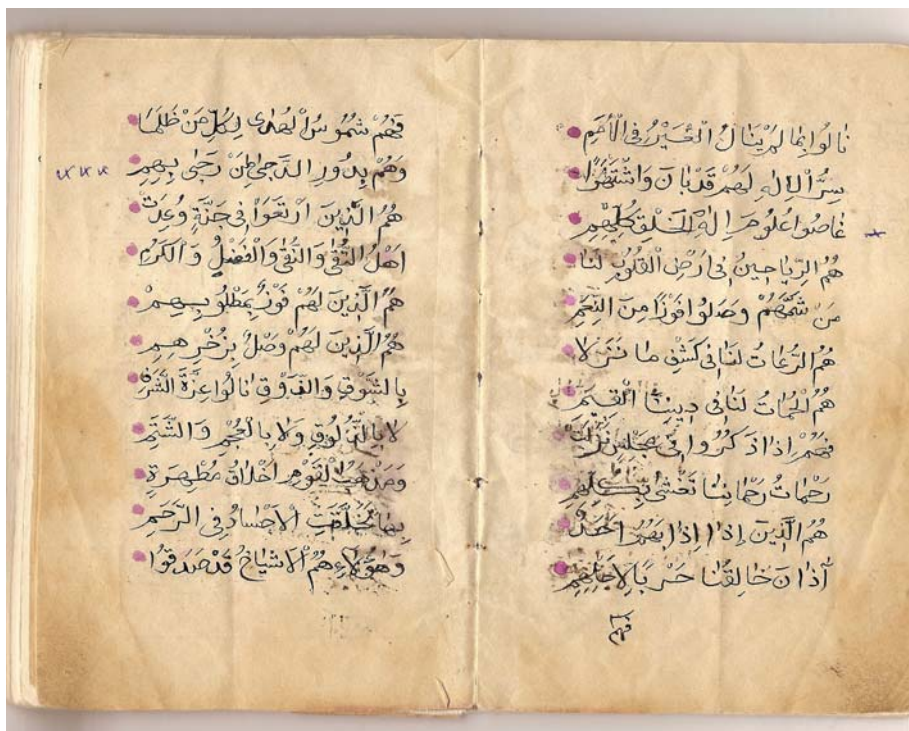 نالوا بما لم ينال الغير في الأمم
سر الإله لهم قد بان واشتهرا
غاصوا علوم إله الخلق كلهم
هم الرياحين في أرض القلوب لنا
من شمهم وصلوا فوزا من النعم
هم الرعات لنا في كشف ما نزلا
هم الحمات لنا في ديننا القيم
فهم إذا ذكروا في مجلس نزلت
رحمات رحماننا تغشى بكلهم
هم الذين إذا إذا بهم أحد
آذان خالقنا حربا لأجلهم
فهم
فهم شموس الهدى لكل من ظلما
وهم بدور الدجى لمن رجى بهم
هم الذين ارتعوا في جنة وعدت
أهل التقى والنقى والفضل والكرم
هم الذين لهم فوز بمطلوبهم
هم الذين لهم وصل بزخرهم
بالشوق والذوق نالوا عزة الشرف
لا بالدلوق ولا بالعجم والشتم
ومذهب القوم أخلاق مطهرة
بها تخلقت الأجساد في الرحم
وهؤلاء هم الأشياخ قد صدقوا